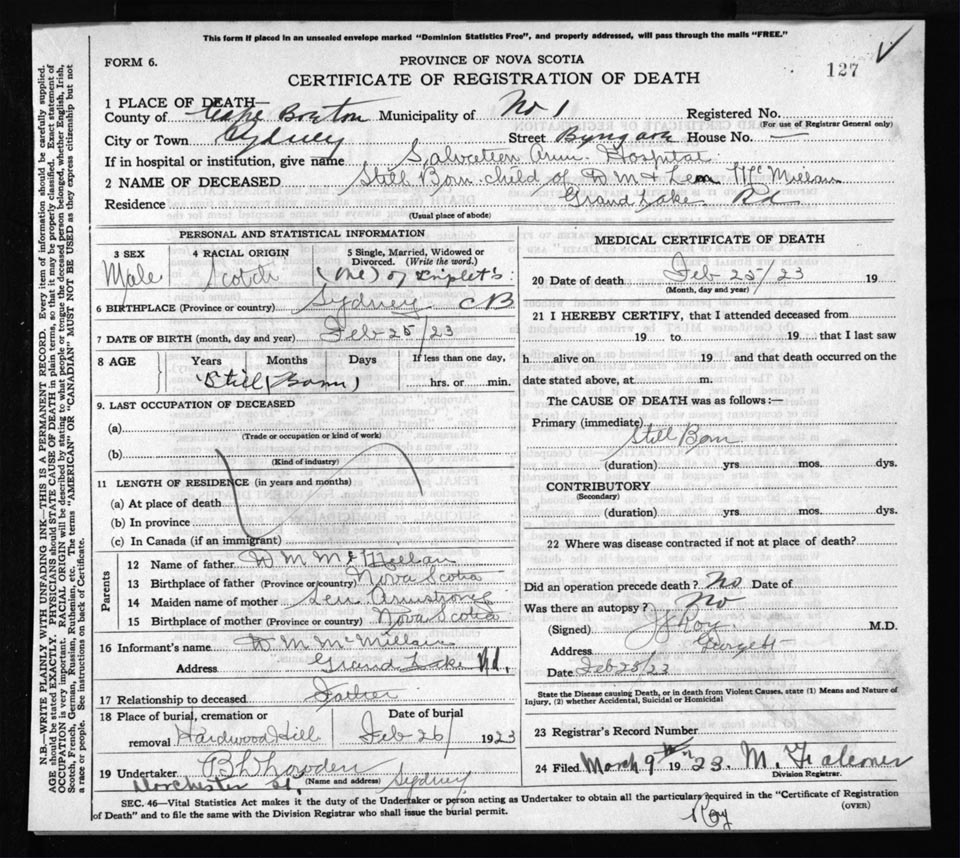 This form if placed in an unsealed envelope marked "Dominion Statistics Free", and properly addressed, will pass through the mails "FREE."
FORM 6.
PROVINCE OF NOVA SCOTIA
127
CERTIFICATE OF REGISTRATION OF DEATH
1 PLACE OF DEATH—
County of Cape Breton Municipality of No 1 Registered No.
(For use of Registrar General only)
City or Town Sydney Street House No. —
If in hospital or institution, give name Salvation Army Hospital
2 NAME OF DECEASED Still Born child of D M & Lena McMillan
Residence Grand Lake Rd
(Usual place of abode)
PERSONAL AND STATISTICAL INFORMATION
3 SEX Male
4 RACIAL ORIGIN Scotch
5 Single, Married, Widowed or Divorced. (Write the word.)
(one) of triplets
6 BIRTHPLACE (Province or country) Sydney CB
7 DATE OF BIRTH (month, day and year) Feb 25/23
8 AGE Years Months Days If less than one day,
Still Born hrs. or min.
9. LAST OCCUPATION OF DECEASED
(a)
(Trade or occupation or kind of work)
(b)
(Kind of industry)
11 LENGTH OF RESIDENCE (in years and months)
(a) At place of death
(b) In province
(c) In Canada (if an immigrant)
Parents
12 Name of father D M McMillan
13 Birthplace of father (Province or country) Nova Scotia
14 Maiden name of mother Armstrong
15 Birthplace of mother (Province or country) Nova Scotia
16 Informant's name D M McMillan
Address Grand Lake Rd.
17 Relationship to deceased Father
18 Place of burial, cremation or removal Hardwood Hill
Date of burial Feb 26/ 1923
19 Undertaker
(Name and address)
Dorchester St. Sydney
MEDICAL CERTIFICATE OF DEATH
20 Date of death Feb 25/23 19
(Month, day and year)
21 I HEREBY CERTIFY, that I attended deceased from
19 to 19 that I last saw
h alive on 19 and that death occurred on the
date stated above, at m.
The CAUSE OF DEATH was as follows:—
Primary (immediate) Still Born
(duration) yrs. mos. dys.
CONTRIBUTORY
(Secondary)
(duration) yrs. mos. dys.
22 Where was disease contracted if not at place of death?
Did an operation precede death? No Date of
Was there an autopsy? No
(Signed) Roy M.D.
Address George St
Date Feb 28/23
State the Disease causing Death, or in death from Violent Causes, state (1) Means and Nature of Injury, (2) whether Accidental, Suicidal or Homicidal
23 Registrar's Record Number
24 Filed March 9th 1923. M. Falconer
Division Registrar.
SEC. 46—Vital Statistics Act makes it the duty of the Undertaker or person acting as Undertaker to obtain all the particulars required in the "Certificate of Registration
of Death" and to file the same with the Division Registrar who shall issue the burial permit.
(OVER)
Roy
N.B.—WRITE PLAINLY WITH UNFADING INK—THIS IS A PERMANENT RECORD. Every item of information should be carefully supplied.
AGE should be stated EXACTLY. PHYSICIANS should STATE CAUSE OF DEATH in plain terms, so that it may be properly classified. Exact statement of
OCCUPATION is very important. RACIAL ORIGIN will be described by stating to what people or tongue the deceased person belonged, whether English, Irish,
Scotch, French, German, Russian, Ruthenian, etc. The terms "AMERICAN" OR "CANADIAN" MUST NOT BE USED as they express citizenship but not
a race or people. See instructions on back of Certificate.